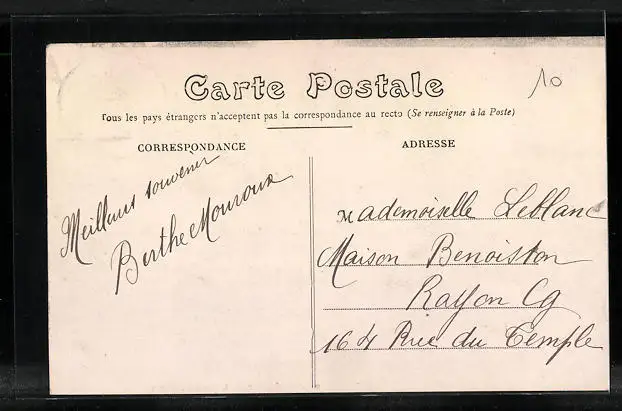 10
Carte Postale
Tous les pays étrangers n'acceptent pas la correspondance au recto (Se renseigner à la Poste)
CORRESPONDANCE
ADRESSE
Meilleurs souvenir
Berthe Mouroux
Mademoiselle Leblanc
Maison Benoiston
Rayon Cg
164 Rue du Temple